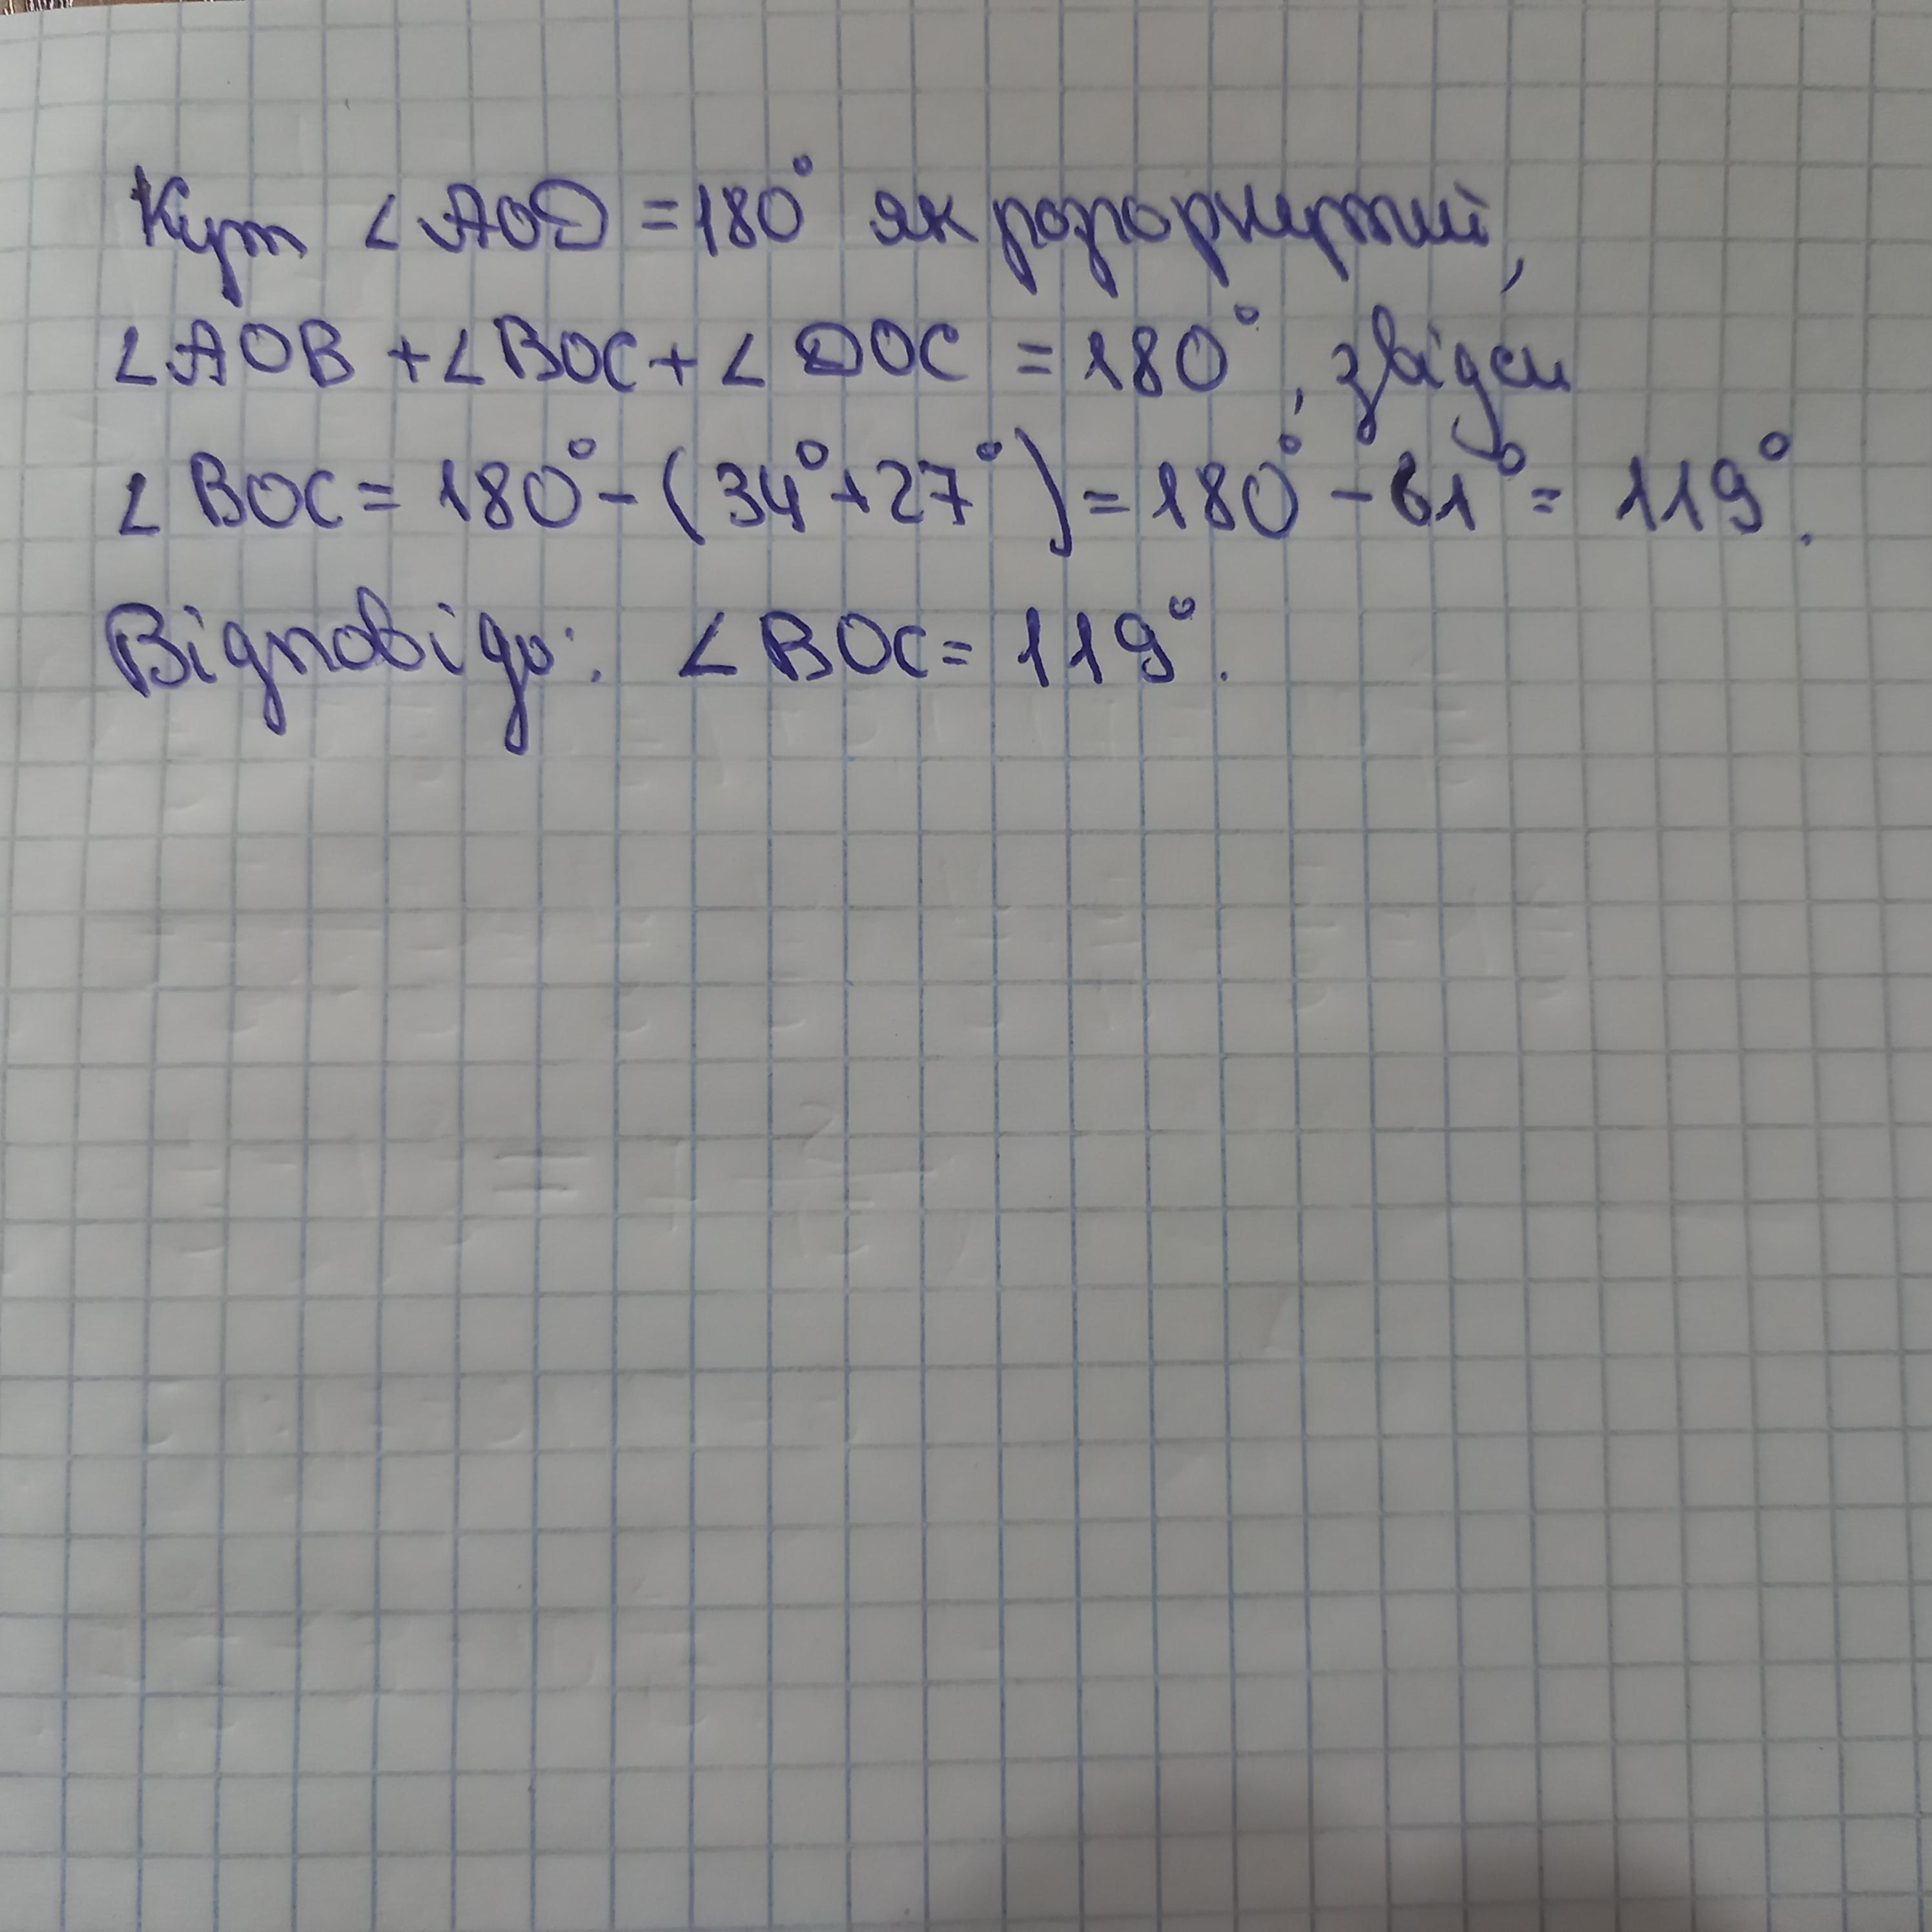 Кут ∠AOD = 180° як розгорнутий,
∠AOB + ∠BOC + ∠DOC = 180°, звідси
∠BOC = 180° - (34° + 27°) = 180° - 61° = 119°.
Відповідь: ∠BOC = 119°.